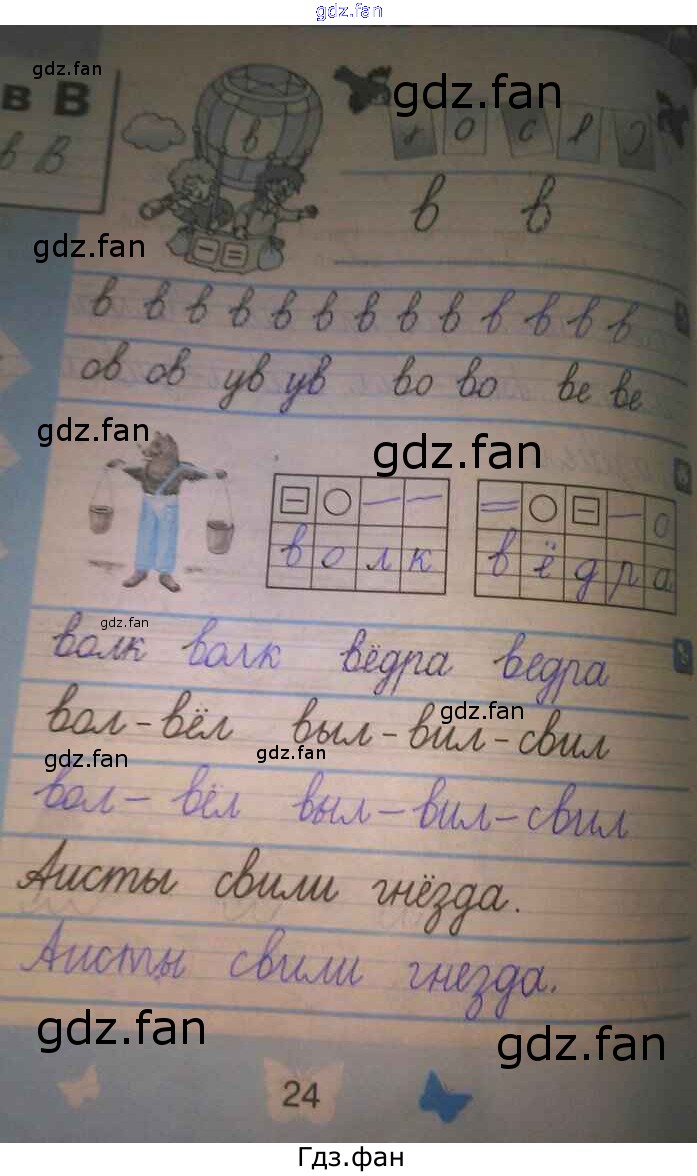 gdz.fan
gdz.fan
gdz.fan
в В
в В
в
о с
в в
gdz.fan
в в в в в в в в в в в в в
ов ов ув ув во во ве ве
gdz.fan
gdz.fan
волк вёдра
gdz.fan
волк волк вёдра ведра
gdz.fan
вол - вёл выл - вил - свил
gdz.fan
gdz.fan
вол - вёл выл - вил - свил
Аисты свили гнёзда.
Аисты свили гнезда.
gdz.fan
gdz.fan
24
Гдз.фан